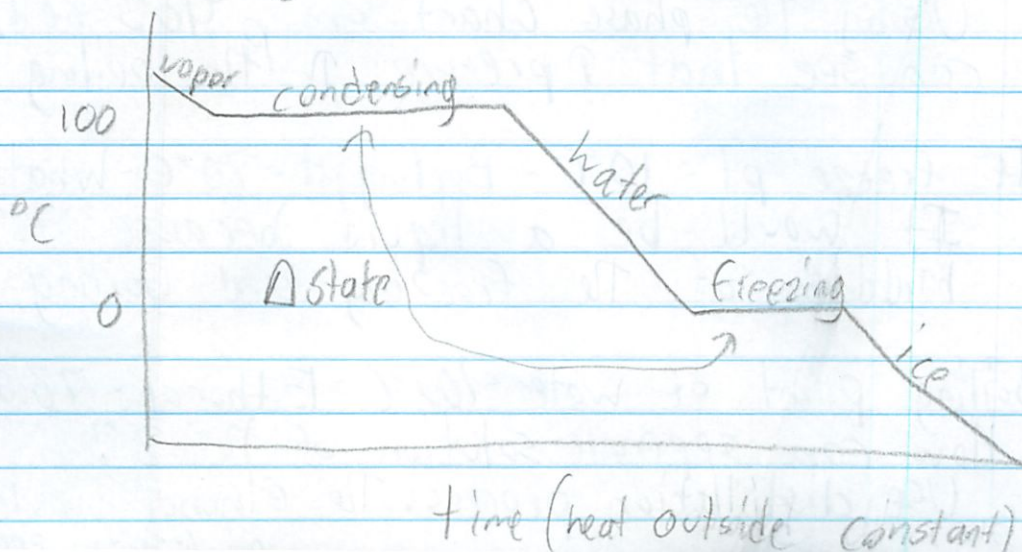 vapor
condensing
100
water
°C
Δ State
freezing
0
ice
time (heat outside constant)